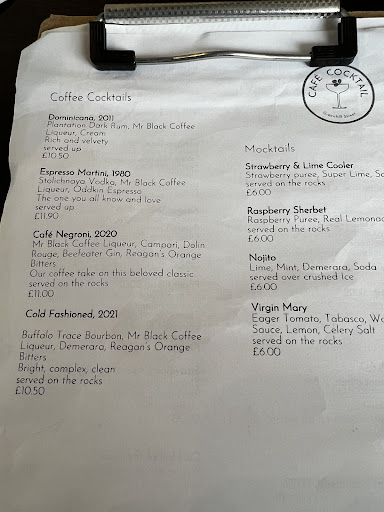 CAFÉ COCKTAIL
Coffee Cocktails
Dominicana, 2011
Plantation Dark Rum, Mr Black Coffee
Liqueur, Cream
Rich and velvety
served up
£10.50
Espresso Martini, 1980
Stolichnaya Vodka, Mr Black Coffee
Liqueur, Oddkin Espresso
The one you all know and love
served up
£11.90
Café Negroni, 2020
Mr Black Coffee Liqueur, Campari, Dolin
Rouge, Beefeater Gin, Reagan's Orange
Bitters
Our coffee take on this beloved classic
served on the rocks
£11.00
Cold Fashioned, 2021
Buffalo Trace Bourbon, Mr Black Coffee
Liqueur, Demerara, Reagan's Orange
Bitters
Bright, complex, clean
served on the rocks
£10.50
Mocktails
Strawberry & Lime Cooler
Strawberry puree, Super Lime, So
served on the rocks
£6.00
Raspberry Sherbet
Raspberry Puree, Real Lemonad
served on the rocks
£6.00
Nojito
Lime, Mint, Demerara, Soda
served over crushed Ice
£6.00
Virgin Mary
Eager Tomato, Tabasco, Wo
Sauce, Lemon, Celery Salt
served on the rocks
£6.00